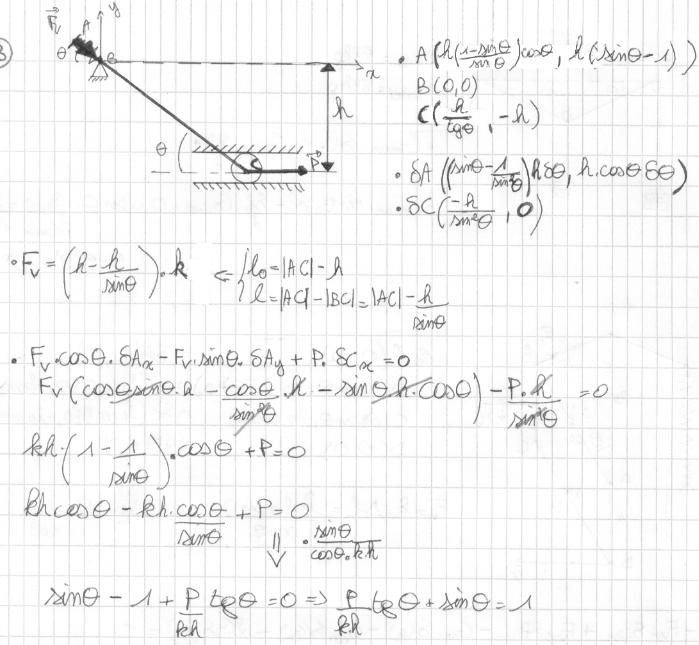 3
F⃗v A y
θ B x
h
θ C P⃗
• A(h(1-sinθ / sinθ)cosθ, h(sinθ-1))
B(0,0)
C(h/tgθ, -h)
• δA((sinθ - 1/sin²θ)hδθ, h.cosθ δθ)
• δC(-h/sin²θ, 0)
• Fv = (h - h/sinθ).k ⇐ { l₀ = |AC| - h
l = |AC| - |BC| = |AC| - h/sinθ
• Fv.cosθ.δAx - Fv.sinθ.δAy + P.δCx = 0
Fv(cosθsinθ.h - cosθ/sin²θ.h - sinθ.h.cosθ) - P.h/sin²θ = 0
kh.(1 - 1/sinθ).cosθ + P = 0
kh cosθ - kh.cosθ/sinθ + P = 0
⇓ . sinθ/cosθ.kh
sinθ - 1 + P/kh tgθ = 0 => P/kh tgθ + sinθ = 1